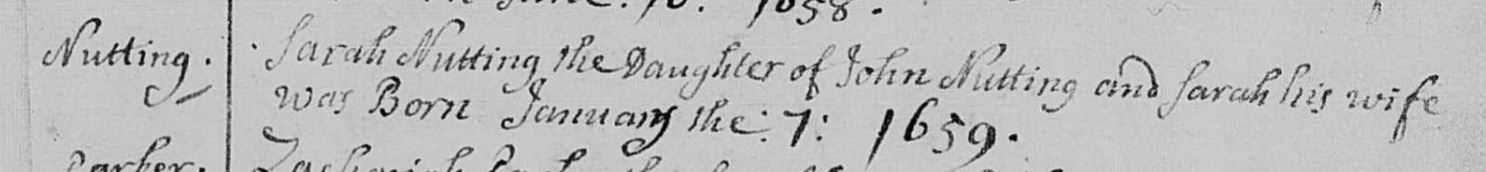 June. 10. 1658.
Nutting. Sarah Nutting the Daughter of John Nutting and Sarah his wife
was Born January the: 7: 1659.
Parker. Zachariah